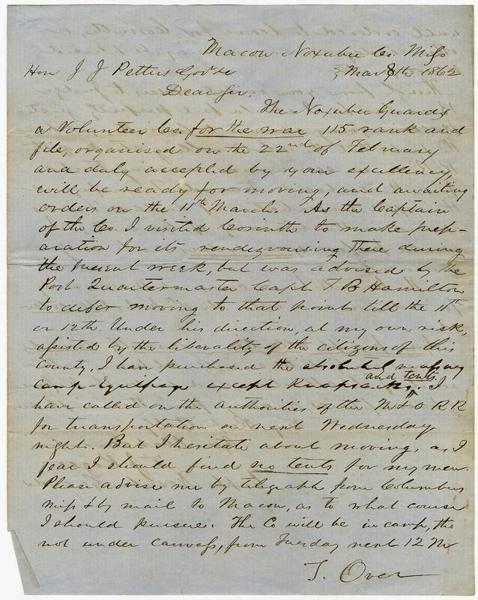 Macon Noxubee Co. Miss
Hon J J Pettus Gov &c March 8th 1862
Dear Sir,
The Noxubee Guards
a Volunteer Co. for the war 115 rank and
file, organised on the 22nd of February
and duly accepted by your excellency
will be ready for moving, and awaiting
orders on the 11th March. As the Captain
of the Co. I visited Corinth to make prep-
aration for its rendezvousing there during
the present week, but was advised by the
Post Quartermaster Capt T B Hamilton
to defer moving to that point till the 11th
or 12th. Under his direction, at my own risk,
assisted by the liberality of the citizens of this
county, I have purchased the absolutely necessary
camp-equipage except Knapsacks and tents. I
have called on the authorities of the M & O R R
for transportation on next Wednesday
night. But I hesitate about moving, as I
fear I should find no tents for my men.
Please advise me by telegraph from Columbus
Miss & by mail to Macon, as to what course
I should pursue. The C will be in camp, tho
not under canvass, from Tuesday next 12 M
T. Over